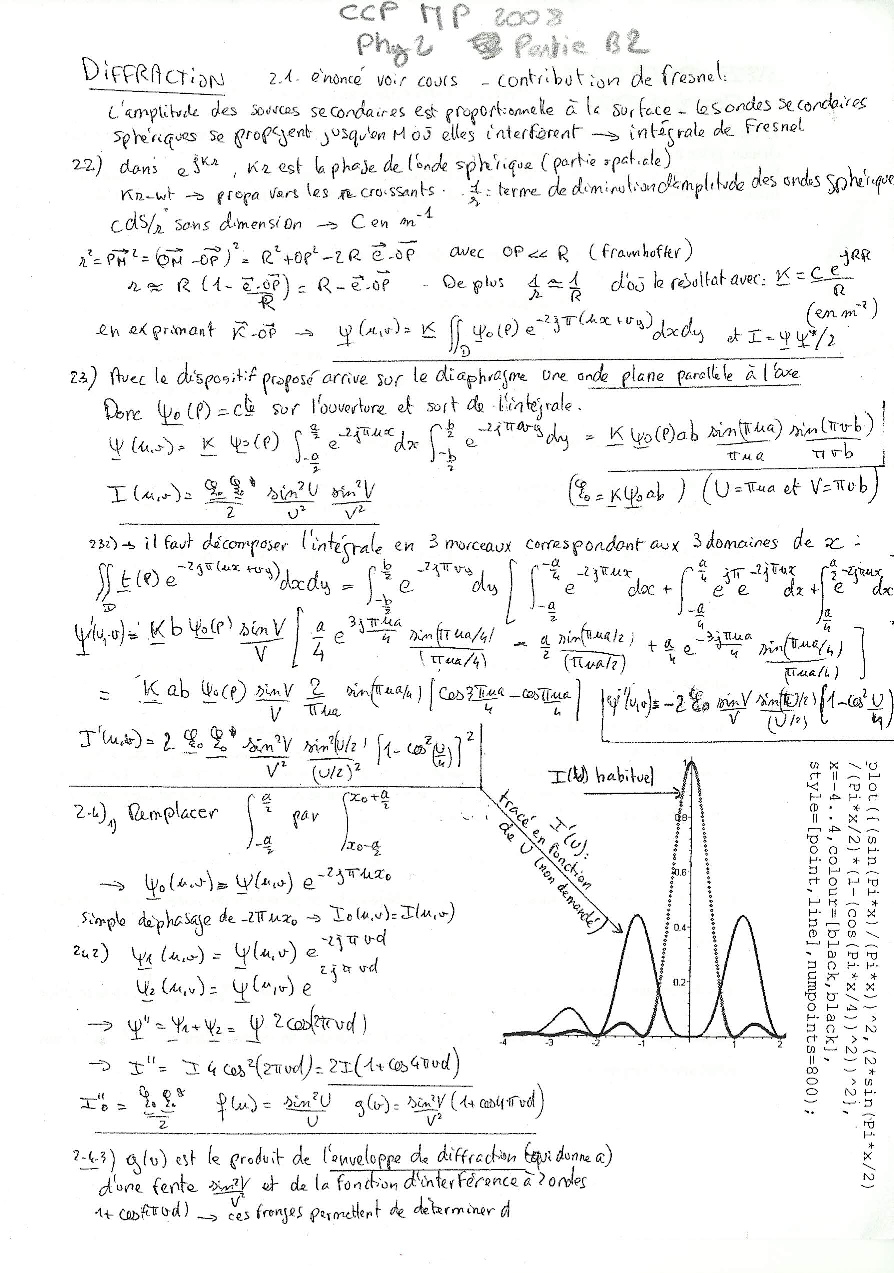 CCP MP 2008
Phy 2 Partie B2
DIFFRACTION 2.1. énoncé voir cours - contribution de fresnel:
L'amplitude des sources secondaires est proportionnelle à la surface - les ondes secondaires
sphériques se propagent jusqu'en M où elles interfèrent → intégrale de Fresnel
22) dans e^{jKr}, Kr est la phase de l'onde sphérique (partie spatiale)
Kr-wt → propa vers les r croissants. 1/r : terme de diminution d'amplitude des ondes sphérique
CdS/r sans dimension → C en m^{-1}
r² = PM² = (OM - OP)² = R² + OP² - 2R e.OP avec OP << R (framhoffer)
r ≈ R (1 - e.OP/R) = R - e.OP - De plus 1/r ≈ 1/R d'où le résultat avec: K = C e^{jkR}/R
(en m^{-2})
en exprimant K.OP → ψ(u,v) = K ∬_D ψ0(P) e^{-2jπ(ux+vy)} dxdy et I = ψψ*/2
23) Avec le dispositif proposé arrive sur le diaphragme une onde plane parallèle à l'axe
Donc ψ0(P) = cte sur l'ouverture et sort de l'intégrale.
ψ(u,v) = K ψ0(P) ∫_{-a/2}^{a/2} e^{-2jπux} dx ∫_{-b/2}^{b/2} e^{-2jπvy} dy = K ψ0(P) ab sin(πua)/πua sin(πvb)/πvb
I(u,v) = φ0 φ0*/2 sin²U/U² sin²V/V² (φ0 = Kψ0ab) (U = πua et V = πvb)
232) → il faut décomposer l'intégrale en 3 morceaux correspondant aux 3 domaines de x :
∬_D t(P) e^{-2jπ(ux+vy)} dxdy = ∫_{-b/2}^{b/2} e^{-2jπvy} dy [ ∫_{-a/2}^{-a/4} e^{-2jπux} dx + ∫_{-a/4}^{a/4} e^{jπ} e^{-2jπux} dx + ∫_{a/4}^{a/2} e^{-2jπux} dx
ψ'(u,v) = K b ψ0(P) sinV/V [ a/4 e^{3jπua/4} sin(πua/4)/(πua/4) - a/2 sin(πua/2)/(πua/2) + a/4 e^{-3jπua/4} sin(πua/4)/(πua/4) ]
= K ab ψ0(P) sinV/V 2/πua sin(πua/4) [cos3πua/4 - cosπua/4] ψ'(u,v) = -2 φ0 sinV/V sin(U/2)/(U/2) [1-cos²U/4]
I'(u,v) = 2 φ0 φ0* sin²V/V² sin²(U/2)/(U/2)² [1-cos²(U/4)]²
2-4)1) Remplacer ∫_{-a/2}^{a/2} par ∫_{x0-a/2}^{x0+a/2}
→ ψ0(u,v) = ψ(u,v) e^{-2jπux0}
simple déphasage de -2πux0 → I0(u,v) = I(u,v)
242) ψ1(u,v) = ψ(u,v) e^{-2jπvd}
ψ2(u,v) = ψ(u,v) e^{2jπvd}
→ ψ" = ψ1 + ψ2 = ψ 2cos(2πvd)
→ I" = I 4cos²(2πvd) = 2I(1+cos4πvd)
I"0 = φ0 φ0*/2 f(u) = sin²U/U g(v) = sin²V/V² (1+cos4πvd)
2-4-3) g(v) est le produit de l'enveloppe de diffraction (qui donne a)
d'une fente sin²V/V² et de la fonction d'interférence à 2 ondes
1+cos(4πvd) → ces franges permettent de déterminer d
I(U) habituel
I'(U):
tracé en fonction
de U (non demandé)
1
0.8
0.6
0.4
0.2
-4 -3 -2 -1 1 2
plot({(sin(Pi*x)/(Pi*x))^2,(2*sin(Pi*x/2)
/(Pi*x/2)*(1-(cos(Pi*x/4))^2))^2},
x=-4..4,colour=[black,black],
style=[point,line],numpoints=800);